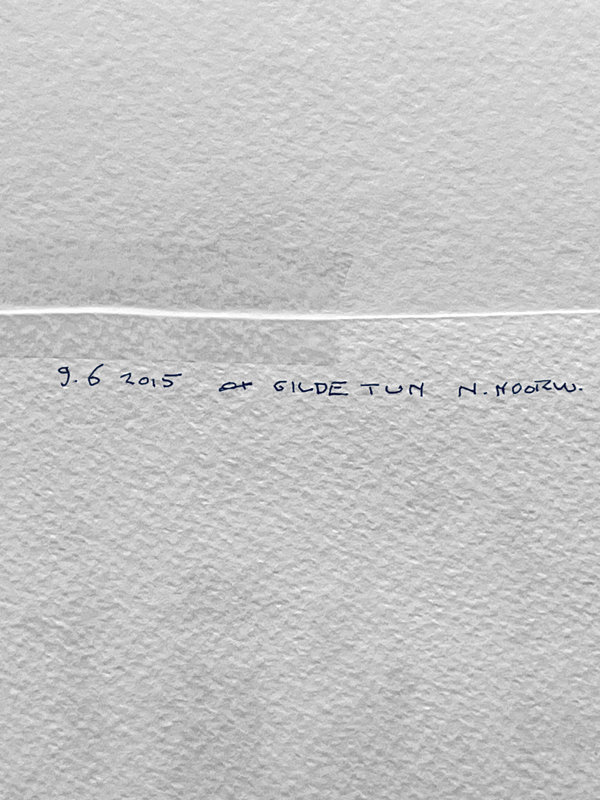 9.6 2015 at GILDE TUN N. NOORW.